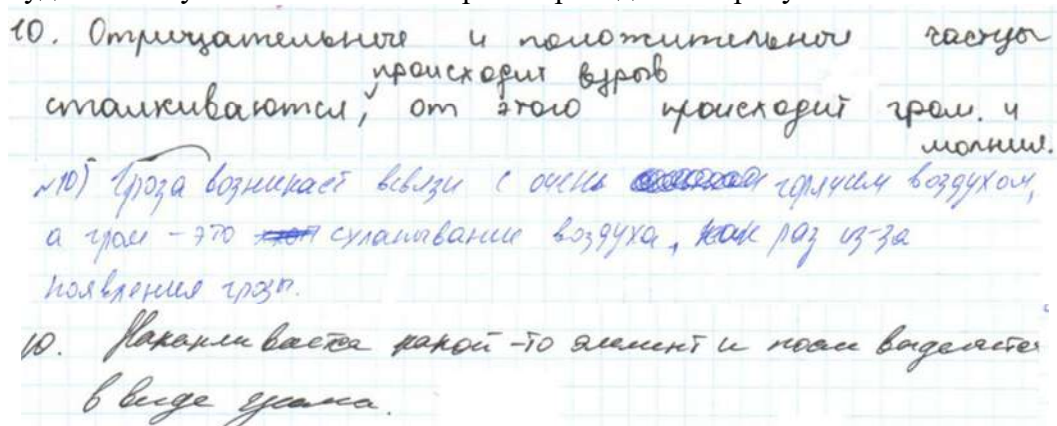 10. Отрицательные и положительные частицы
происходит взрыв
сталкиваются, от этого происходит гром. и
молния.
№10) Гроза возникает ввязи с очень горячим воздухом,
а гром - это схлапывание воздуха, как раз из-за
появления грозы.
10. Накапливается какой-то элемент и после выделяется
в виде грома.